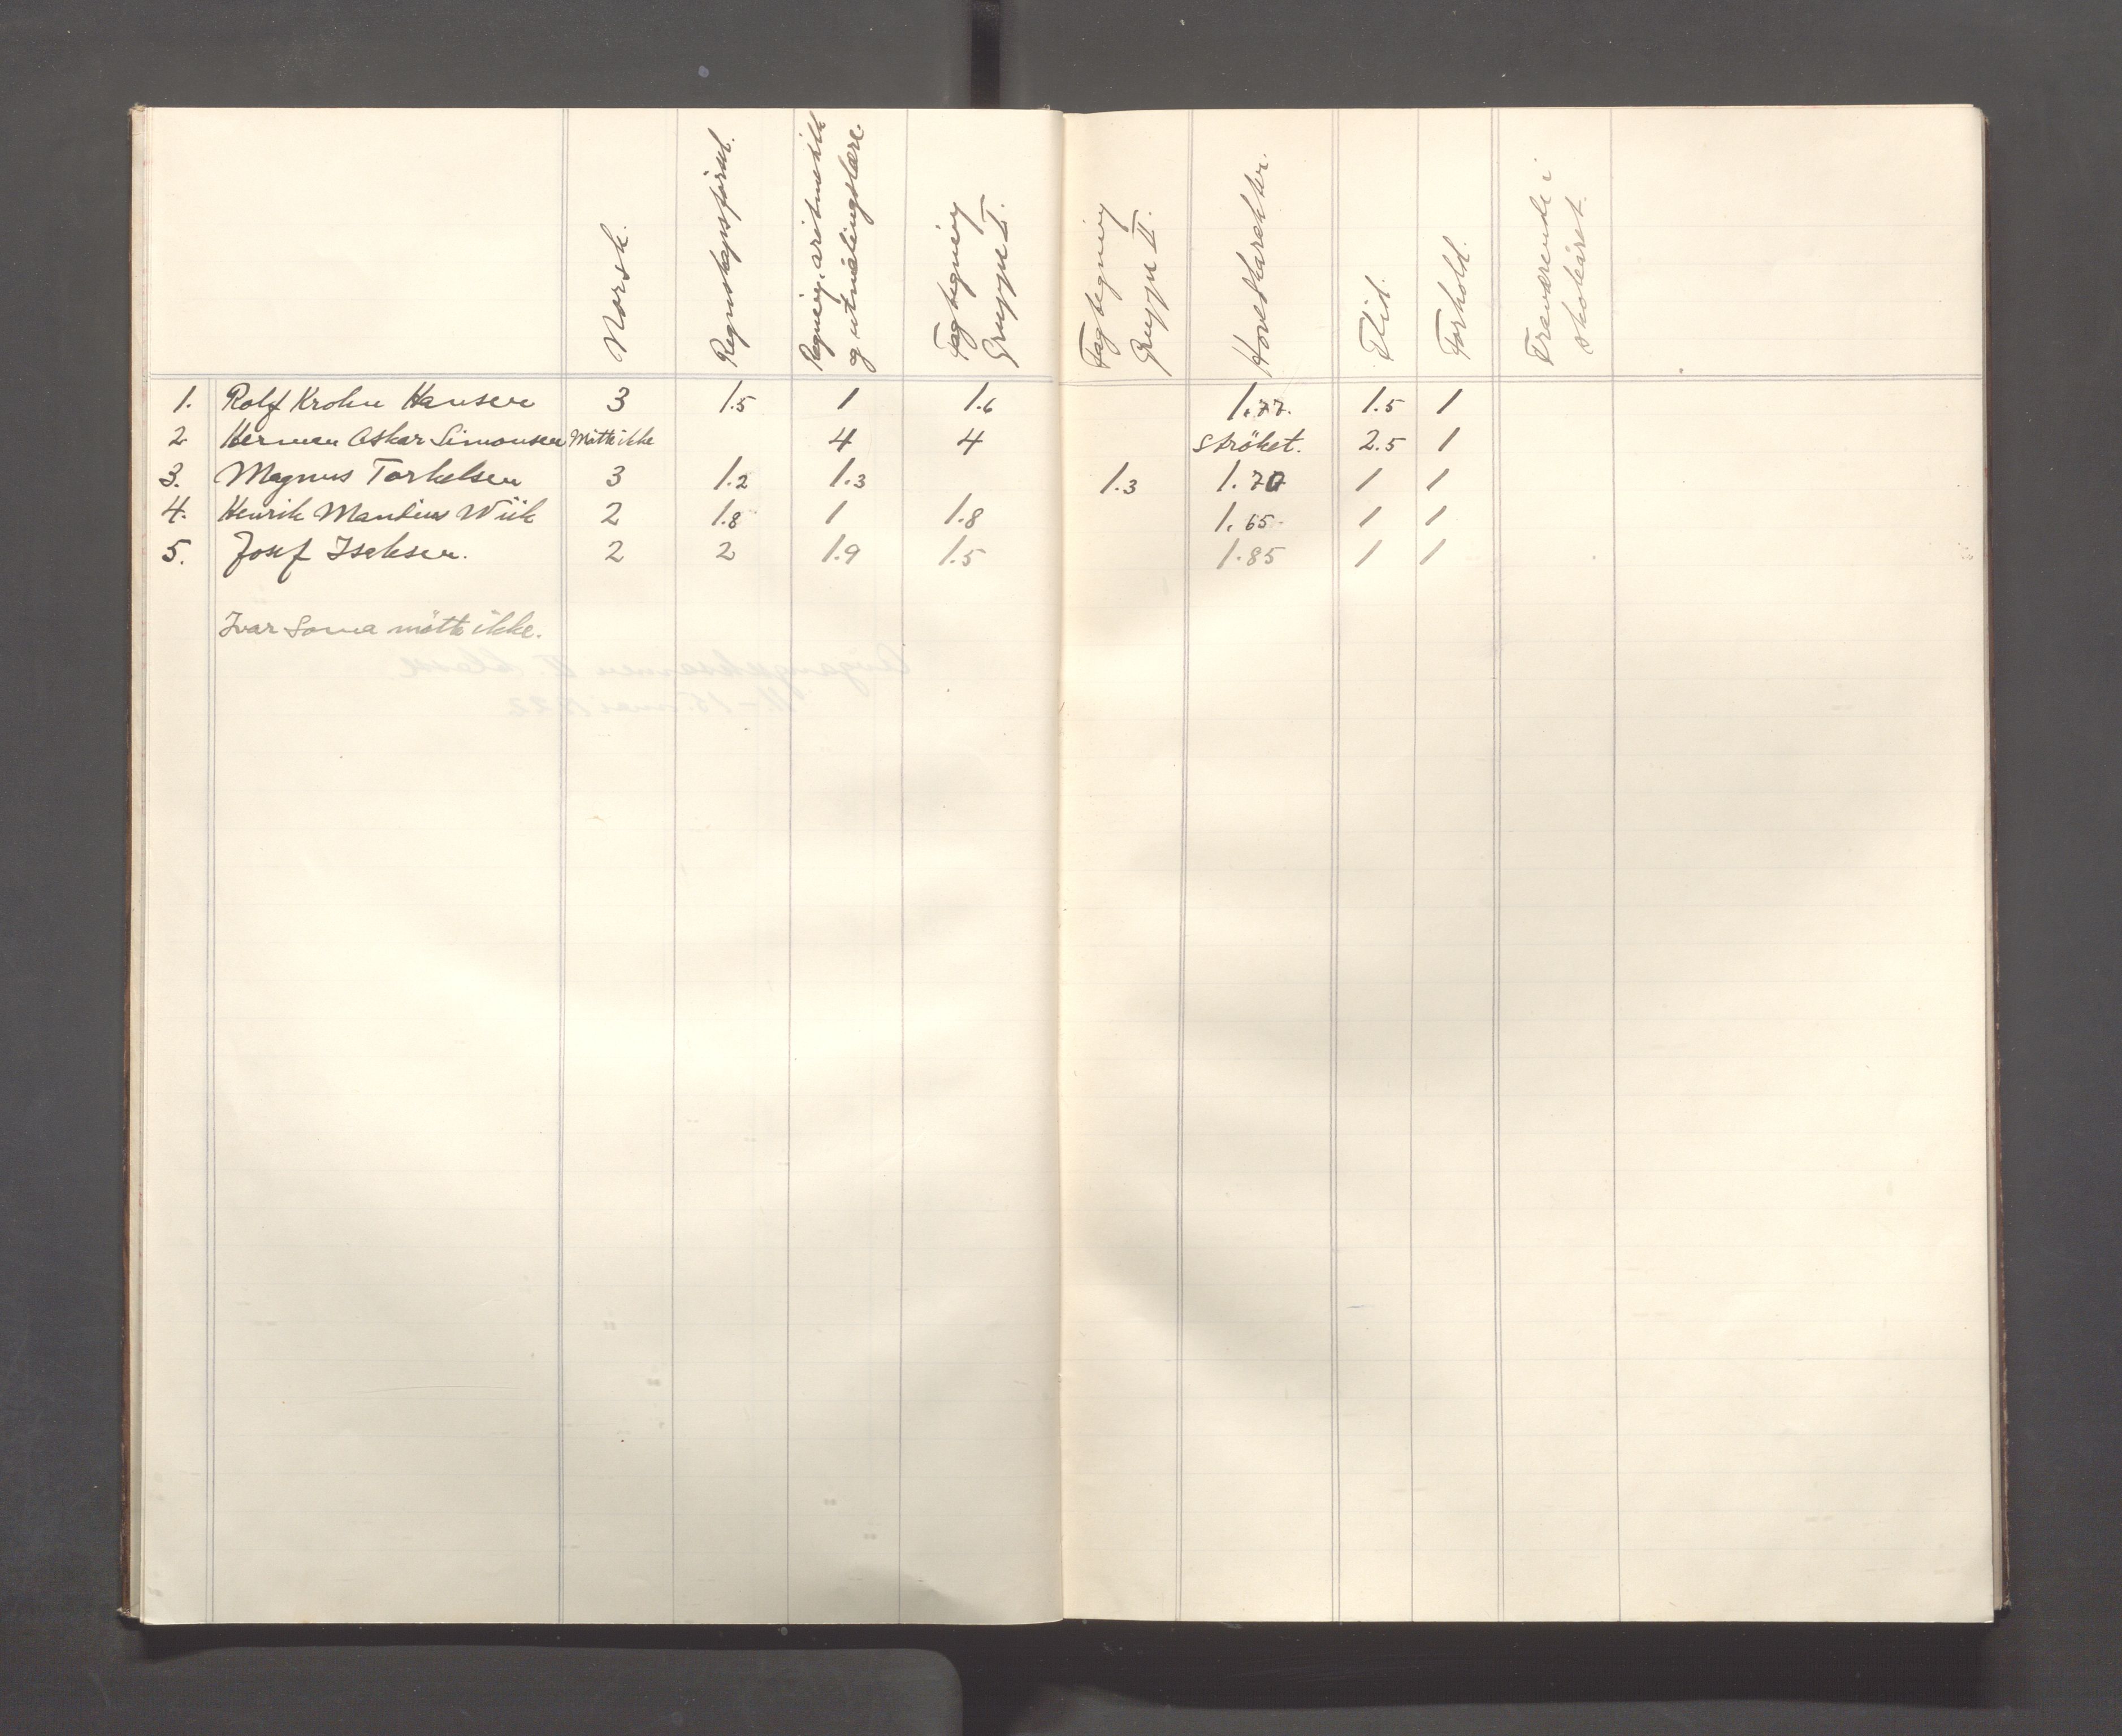 Norsk.
Regnskapsförsel.
Regning, aritmetikk
og utmålingslære.
Fagtegning
Gruppe I.
Fagtegning
Gruppe II.
Hovedkarakter.
Flid.
Forhold.
Fraværende i
skoleåret.
1. Rolf Krohn Hansen 3 1.5 1 1.6 1.77. 1.5 1
2 Herman Oskar Simonsen Mötte ikke 4 4 Ströket. 2.5 1
3. Magnus Torkelsen 3 1.2 1.3 1.3 1.70 1 1
4. Henrik Mandius Wiik 2 1.8 1 1.8 1.65 1 1
5. Josef Iseksen. 2 2 1.9 1.5 1.85 1 1
Ivar Soma mötte ikke.